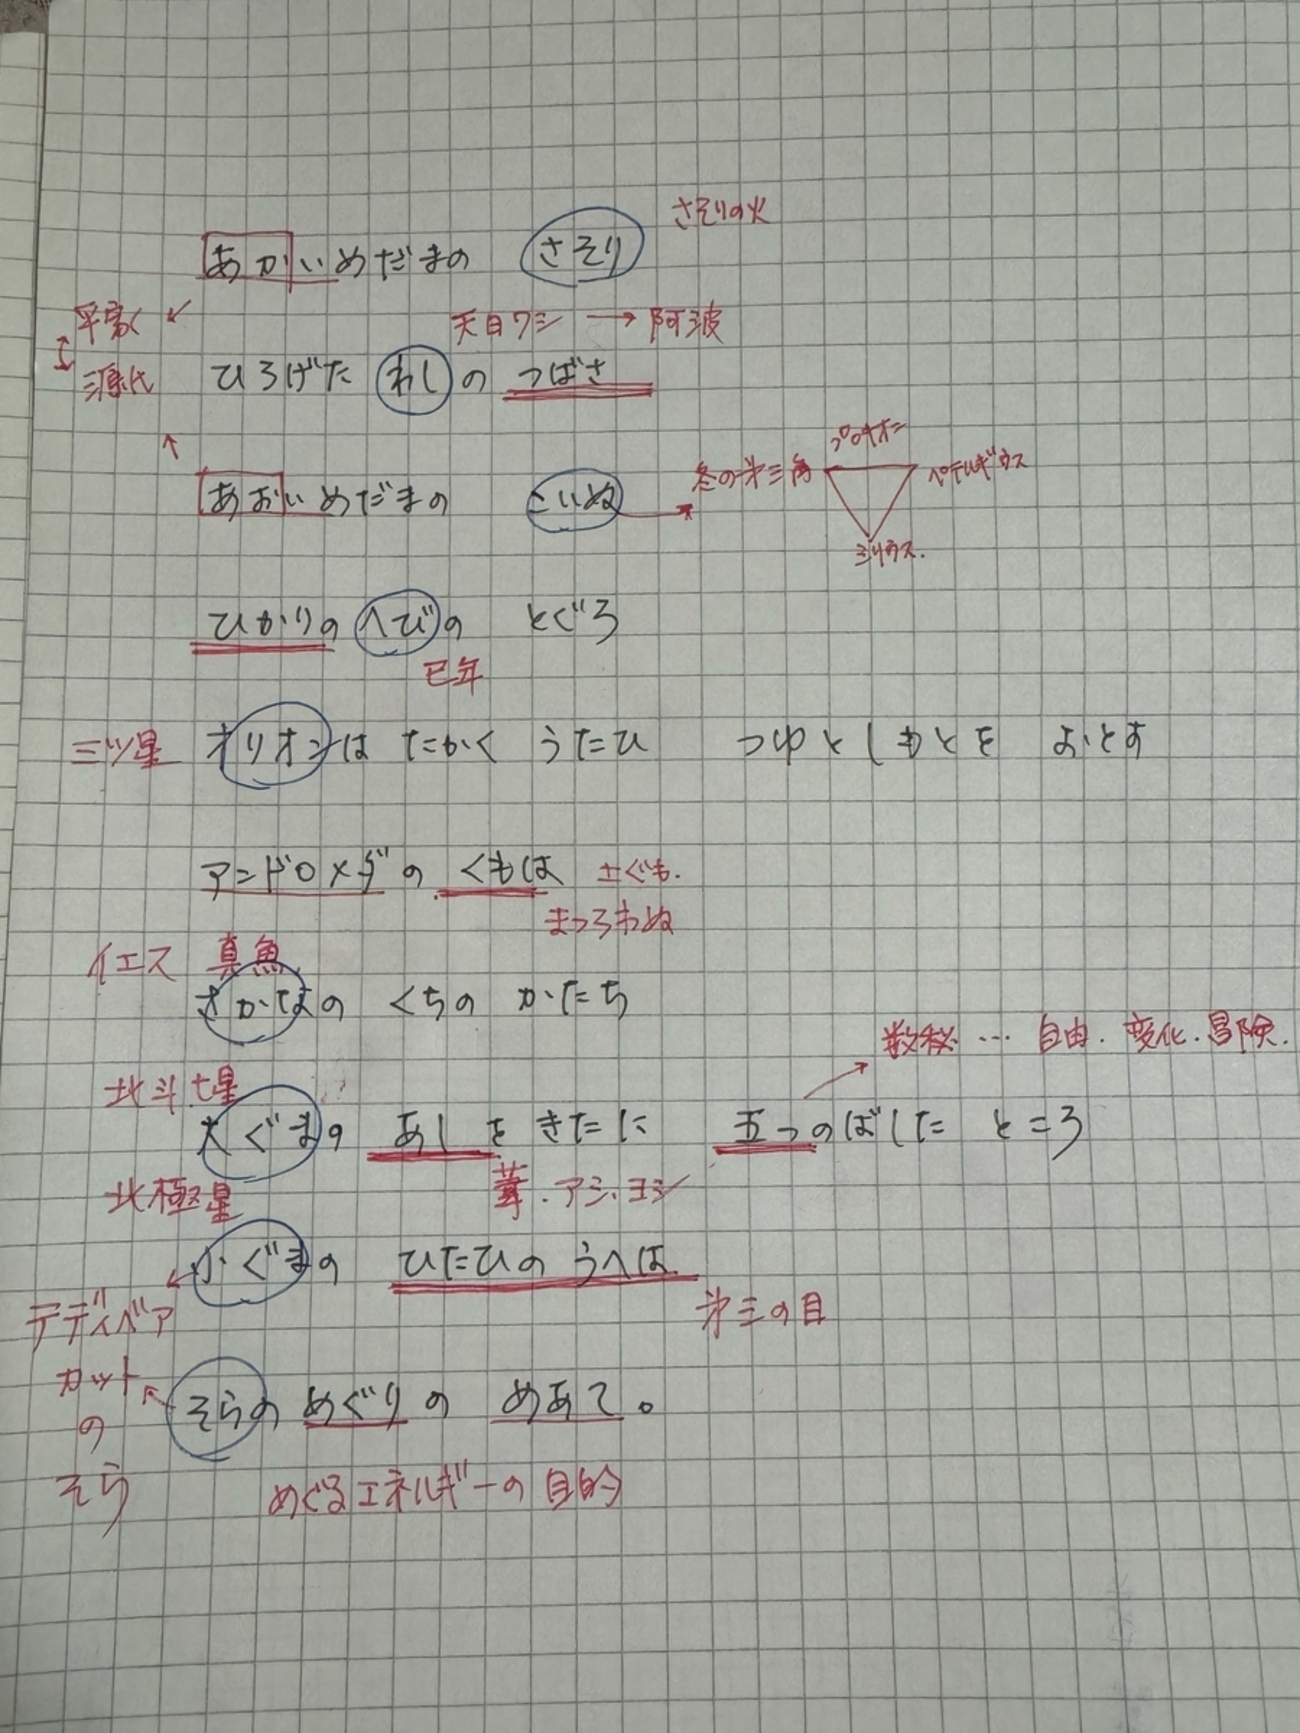 さそりの火
あかいめだまの さそり
平家
天日ワシ → 阿波
源氏 ひろげた わしの つばさ
プロキオン
冬の第三角 ペテルギウス
あおいめだまの こいぬ
シリウス.
ひかりの へびの とぐろ
巳年
三ツ星 オリオンは たかく うたひ つゆとしもとを おとす
アンドロメダの くもは 土ぐも.
まつろわぬ
イエス 真魚
さかなの くちの かたち
数秘 … 自由. 変化. 冒険.
北斗七星
大ぐまの あしを きたに 五つのばした ところ
北極星 葦. アシ. ヨシ
小ぐまの ひたひの うへは
テディベア 第三の目
カット
の
そら
そらの めぐりの めあて。
めぐるエネルギーの目的